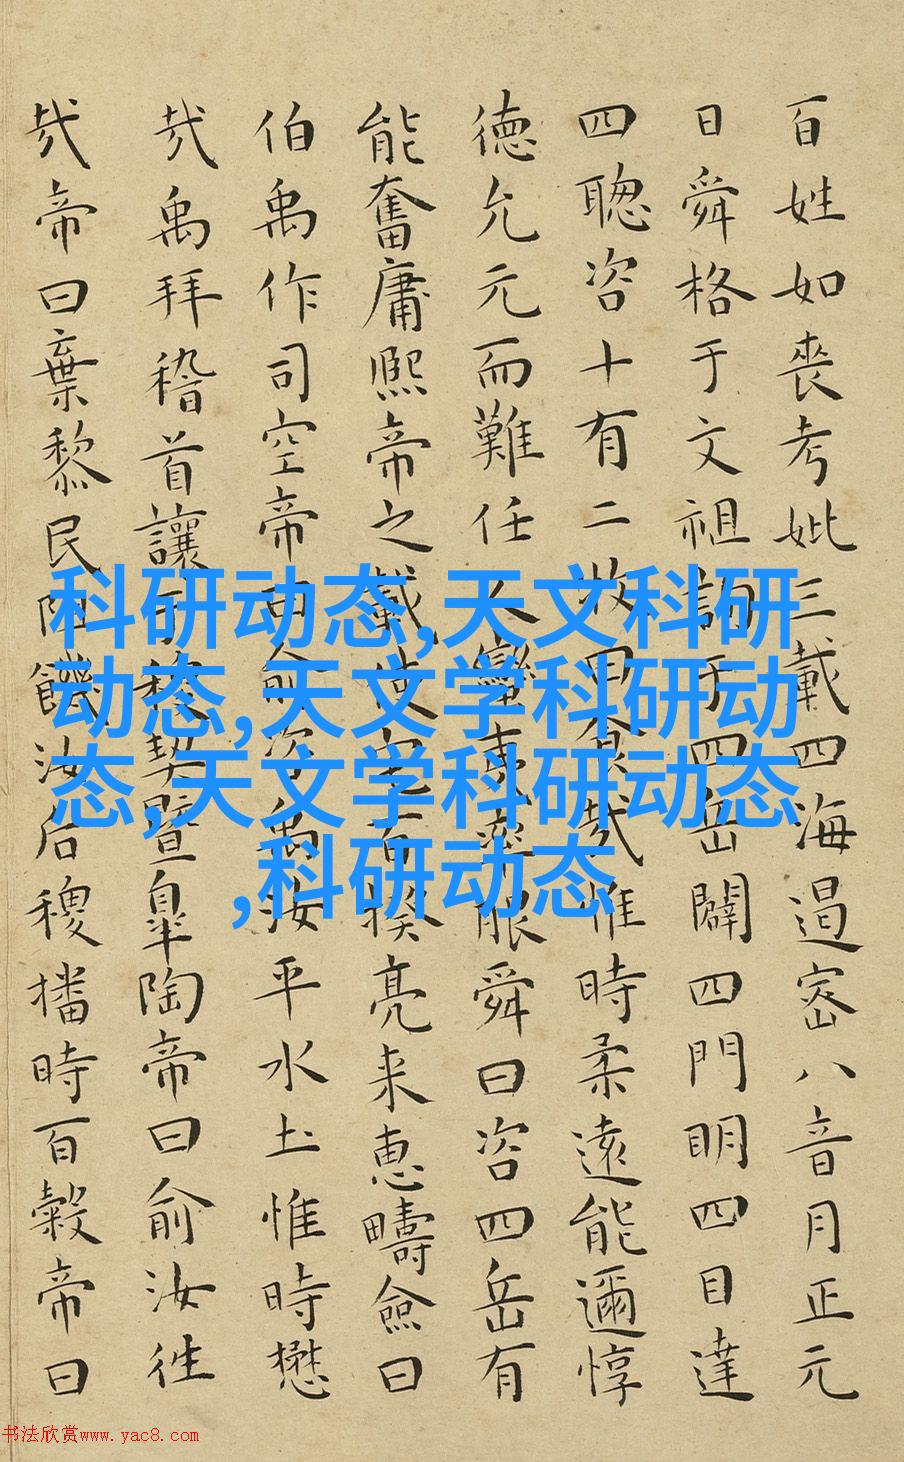 百姓如喪考妣三載四海遏密八音月正元
日舜格于文祖詢于四岳闢四門明四目達
四聰咨十有二牧曰食哉惟時柔遠能邇惇
德允元而難任人蠻夷率服舜曰咨四岳有
能奮庸熙帝之載使宅百揆亮采惠疇僉曰
伯禹作司空帝曰俞咨禹汝平水土惟時懋
哉禹拜稽首讓于稷契暨皐陶帝曰俞汝徃
哉帝曰棄黎民阻饑汝后稷播時百穀帝曰
科研动态,天文科研
动态,天文学科研动
态,天文学科研动态
,科研动态
书法欣赏www.yac8.com